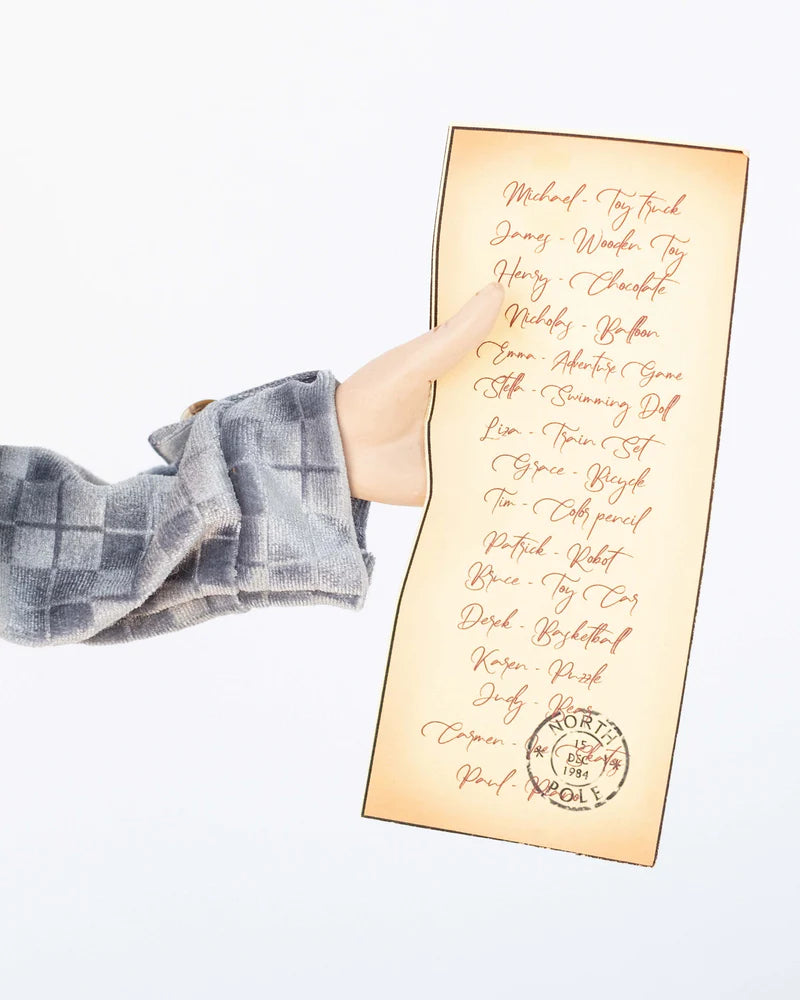 Michael - Toy truck
James - Wooden Toy
Henry - Chocolate
Nicholas - Balloon
Emma - Adventure Game
Stella - Swimming Doll
Liza - Train Set
Grace - Bicycle
Tim - Color pencil
Patrick - Robot
Bruce - Toy Car
Derek - Basketball
Karen - Puzzle
Judy - Bear
Carmen - Ice Skates
Paul - Piano
NORTH
15
DEC
1984
POLE